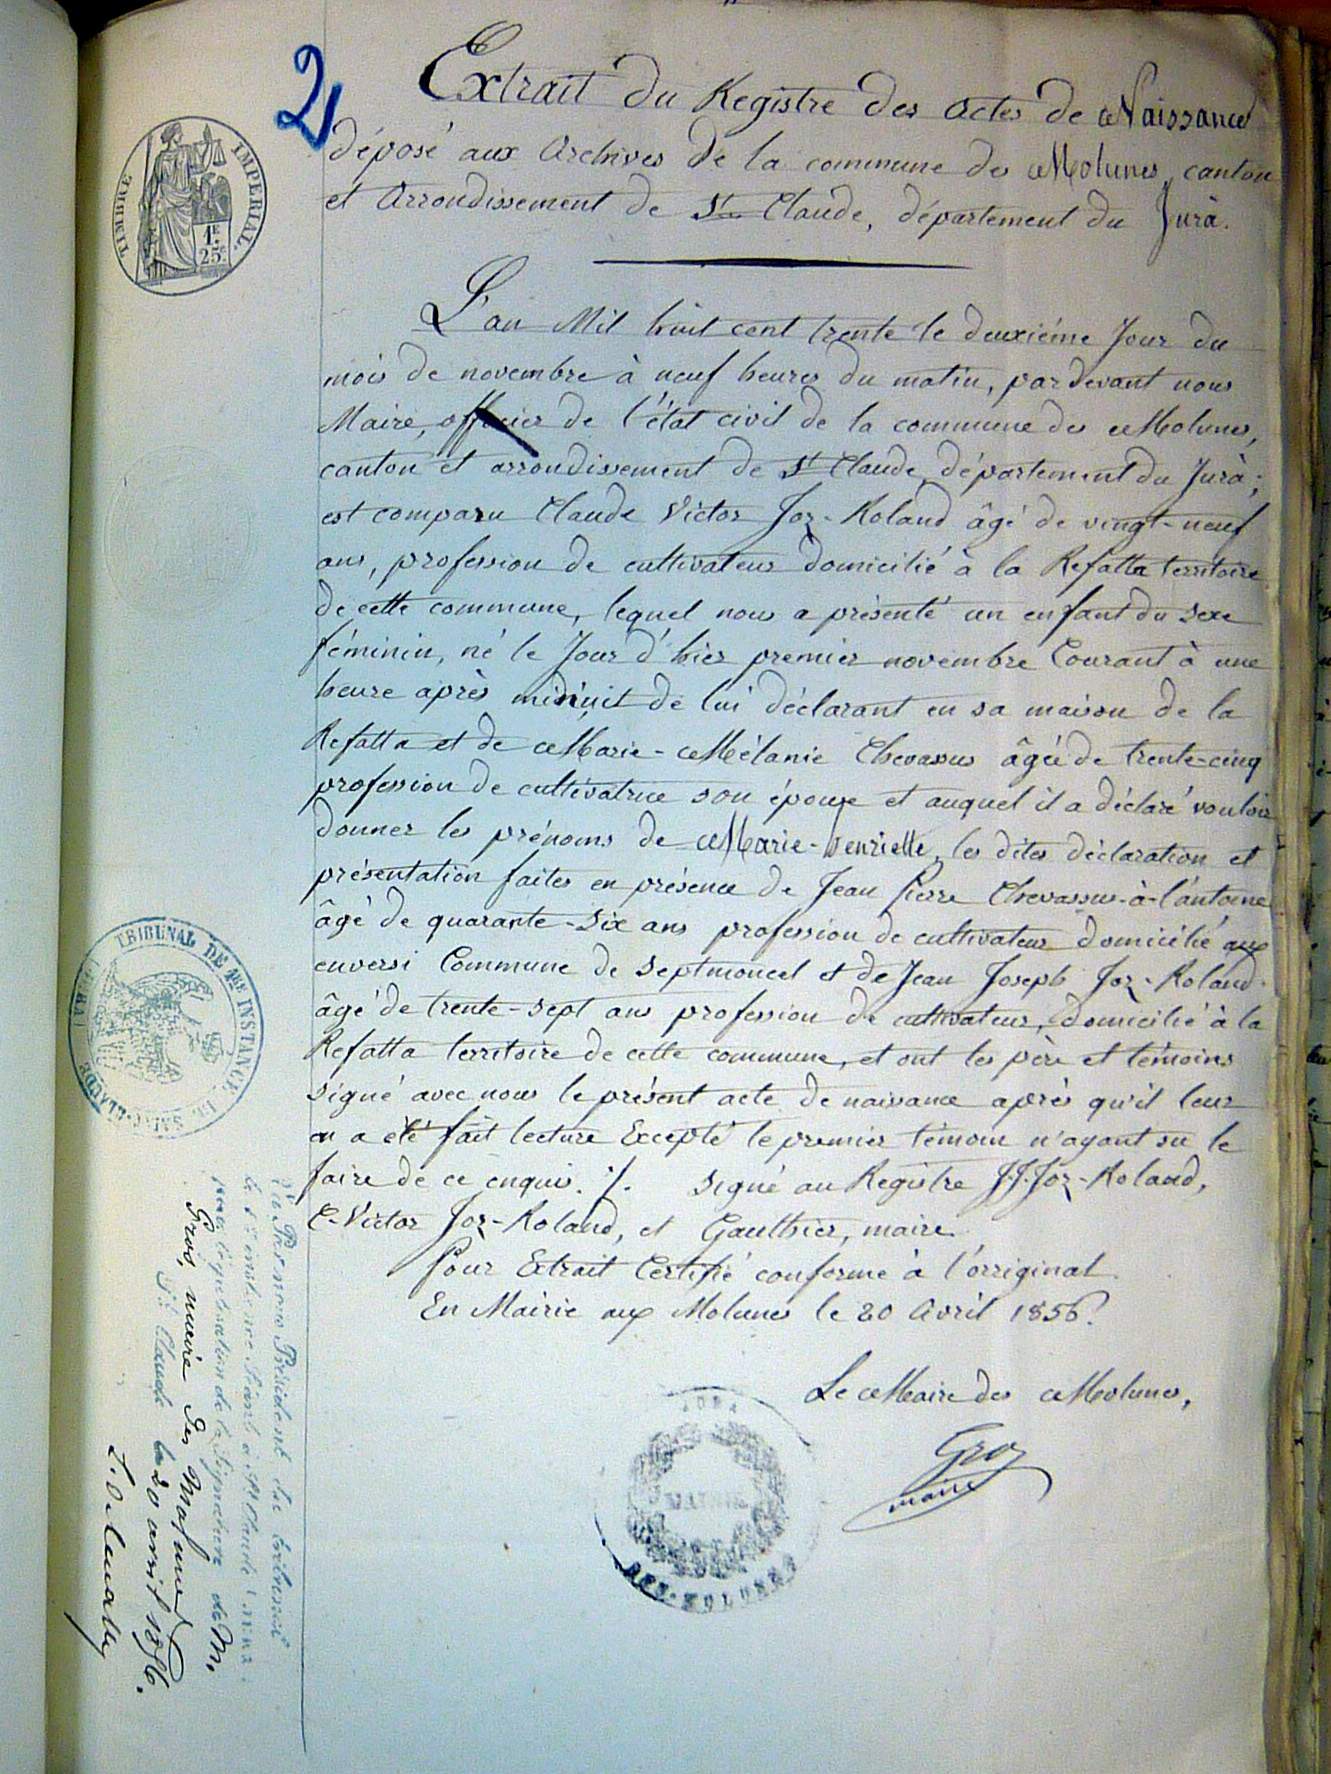 2
Extrait du Registre des Actes de Naissance
déposé aux Archives de la commune des Molunes, canton
et Arrondissement de St Claude, département du Jura.
TIMBRE IMPERIAL.
1F
25c
L'an Mil huit cent trente le deuxième Jour du
mois de novembre à neuf heures du matin, pardevant nous
Maire, officier de l'état civil de la commune des Molunes,
canton et arrondissement de St Claude, département du Jura;
est comparu Claude Victor Joz-Roland âgé de vingt-neuf
ans, profession de cultivateur domicilié à la Refatta territoire
de cette commune, lequel nous a présenté un enfant du sexe
féminin, né le Jour d'hier premier novembre Courant à une
heure après minuit de lui déclarant en sa maison de la
Refatta et de Marie-Mélanie Chevassus âgée de trente-cinq
profession de cultivatrice son épouse et auquel il a déclaré vouloir
donner les prénoms de Marie-henriette, les dites déclaration et
présentation faites en présence de Jean Pierre Chevassus-à-l'antoine
âgé de quarante-six ans profession de cultivateur domicilié aux
enversi Commune de Septmoncel et de Jean Joseph Joz-Roland
âgé de trente-sept ans profession de cultivateur, domicilié à la
Refatta territoire de cette commune, et ont les père et témoins
signé avec nous le présent acte de naissance après qu'il leur
en a été fait lecture Excepté le premier témoin n'ayant su le
faire de ce enquis. ./. signé au Registre J.J. Joz-Roland,
C-Victor Joz-Roland, et Gauthier, maire.
Pour Extrait Certifié conforme à l'orriginal
En Mairie aux Molunes le 20 Avril 1856.
Le Maire des Molunes,
Groz
maire
MAIRIE
DES-MOLUNES
TRIBUNAL DE 1ERE INSTANCE DE SAINT-CLAUDE (JURA)
Président du tribunal
de 1re instance séant à St Claude (Jura)
législation de la Signature de M.
Groz, maire des Molunes
St Claude le 20 avril 1856.